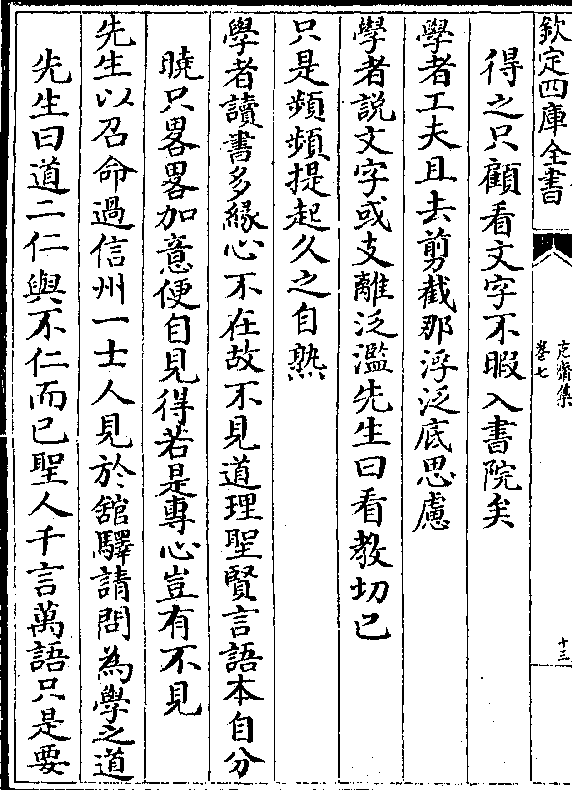 欽定四庫全書
克齋集
卷七
十三
得之只顧看文字不暇入書院矣
學者工夫且去剪截那浮泛底思慮
學者説文字或支離泛濫先生曰看教切已
只是頻頻提起久之自熟
學者讀書多緣心不在故不見道理聖賢言語本自分
曉只畧畧加意便自見得若是專心豈有不見
先生以召命過信州一士人見於舘驛請問為學之道
先生曰道二仁與不仁而已聖人千言萬語只是要